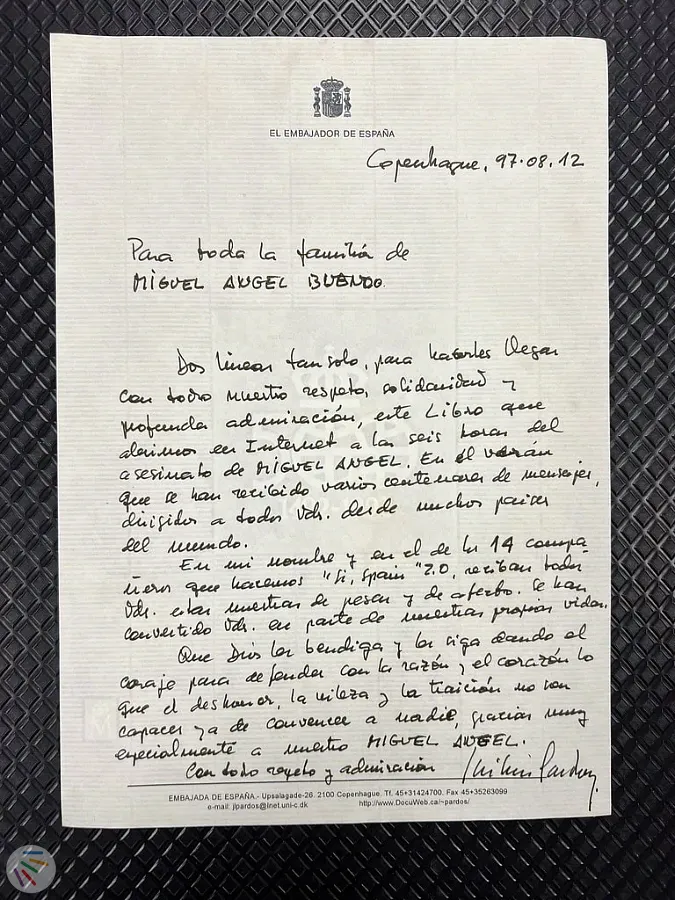 EL EMBAJADOR DE ESPAÑA
Copenhague, 97.08.12
Para toda la familia de
MIGUEL ANGEL BLANCO.
Dos líneas tan solo, para hacerles llegar
con todo nuestro respeto, solidaridad y
profunda admiración, este Libro que
abrimos en Internet a las seis horas del
asesinato de MIGUEL ANGEL. En él verán
que se han recibido varios centenares de mensajes,
dirigidos a todos Vds. desde muchos países
del mundo.
En mi nombre y en el de los 14 compa-
ñeros que hacemos "Sí, Spain" 2.0, reciban todos
Vds. estas muestras de pesar y de afecto. Se han
convertido Vds. en parte de nuestras propias vidas.
Que Dios los bendiga y los siga dando el
coraje para defender con la razón y el corazón lo
que el deshonor, la vileza y la traición no son
capaces ya de convencer a nadie, gracias muy
especialmente a nuestro MIGUEL ANGEL.
Con todo respeto y admiración
EMBAJADA DE ESPAÑA.- Upsalagade-26. 2100 Copenhague. Tf. 45+31424700. Fax 45+35263099
e-mail: jlpardos@inet.uni-c.dk http://www.DocuWeb.ca/~pardos/